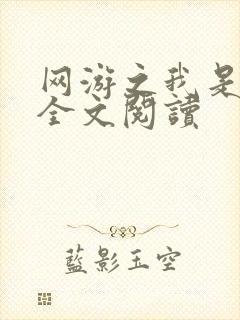 网游之我是
全文閱讀
藍影玉空